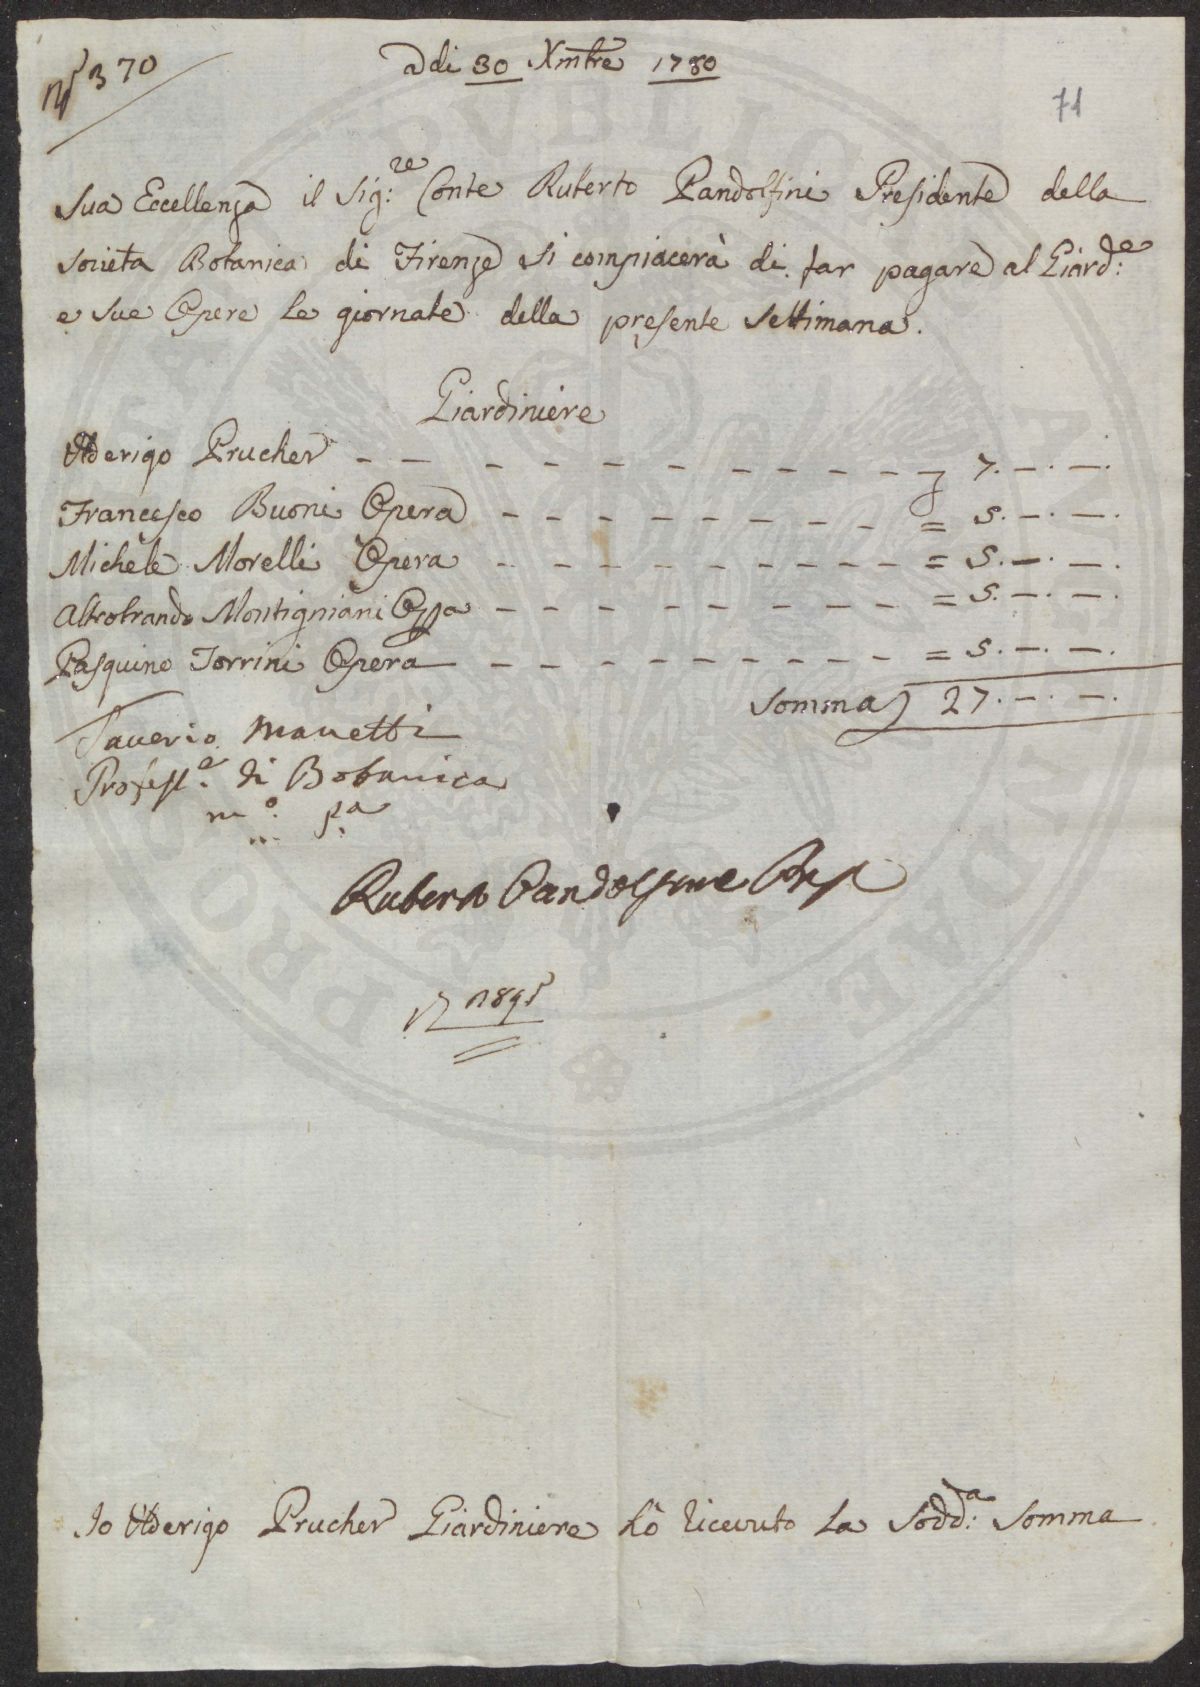 N° 370
adi 30 Xmbre 1780
71
Sua Eccellenza il Sig:re Conte Ruberto Pandolfini Presidente della
Società Botanica di Firenze si compiacerà di far pagare al Giard:e
e sue Opere le giornate della presente Settimana.
Giardiniere
Aderigo Prucher 7. —. —.
Francesco Buoni Opera = 5. —. —.
Michele Morelli Opera = 5. —. —.
Altobrando Montigniani Opa = 5. —. —.
Pasquino Torrini Opera = 5. —. —.
Somma 27. —. —.
Saverio Manetti
Profess:e di Botanica
m:o p:a
Ruberto Pandolfini Pres
Io Aderigo Prucher Giardiniere hò ricevuto la Sodd:a Somma